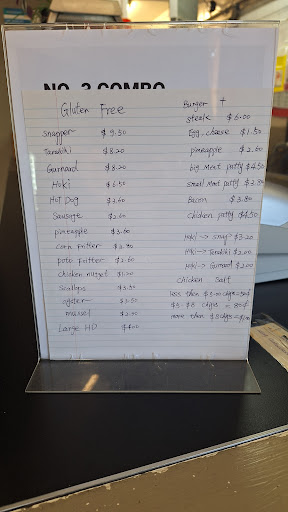 NO. 3 COMBO
Gluten Free
Snapper $9.50
Tarakihi $8.20
Gurnard $8.20
Hoki $6.50
Hot Dog $2.60
Sausage $2.60
pineapple $3.60
corn fritter $2.80
pota fritter $2.60
chicken nugget
Scallops $3.50
oyster $3.50
mussel
Large HD
Burger +
steak $6.00
Egg, cheese $1.50
pineapple $2.60
big Meat patty $4.50
small Meat patty
Bacon $3.80
chicken patty $4.50
Hoki -> snap $3.20
Hoki -> Tarakihi $2.00
Hoki -> Gurnard $2.00
chicken salt
less than
$5-8 chips = 80¢
more than $8 chips =